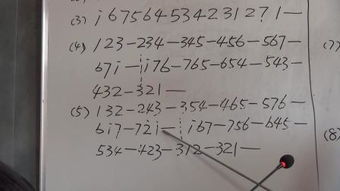 (3) i67564534231271—
(4) 123-234-345-456-567-
67i-i76-765-654-543-
432-321—
(5) 132-243-354-465-576-
6i7-72i-i67-756-645-
534-423-312-321—
(7)
(8)